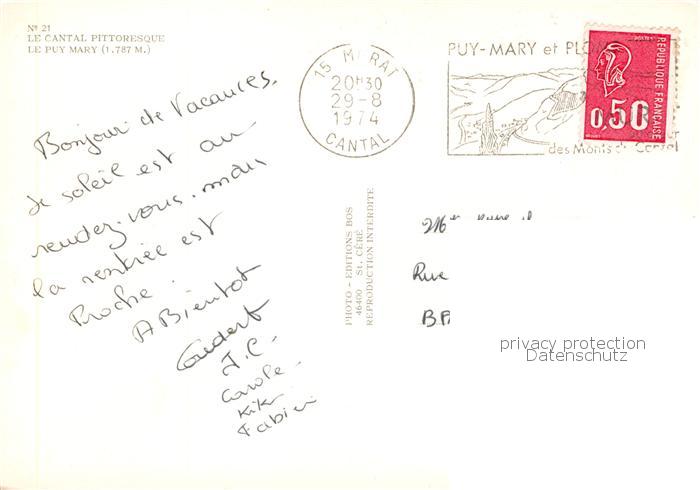 Nº 21
LE CANTAL PITTORESQUE
LE PUY MARY (1.787 M.)
Bonjour de Vacances.
Le soleil est au
rendez-vous. mais
la rentrée est
Proche.
A Bientôt
J.C.
Carole
Kiki
Fabien
PHOTO - EDITIONS BOS
46400 St. CÉRÉ
REPRODUCTION INTERDITE
15 MURAT
20H30
29-8
1974
CANTAL
PUY-MARY et PLO
des Monts du Cantal
POSTES
REPUBLIQUE FRANÇAISE
0,50
Rue
privacy protection
Datenschutz